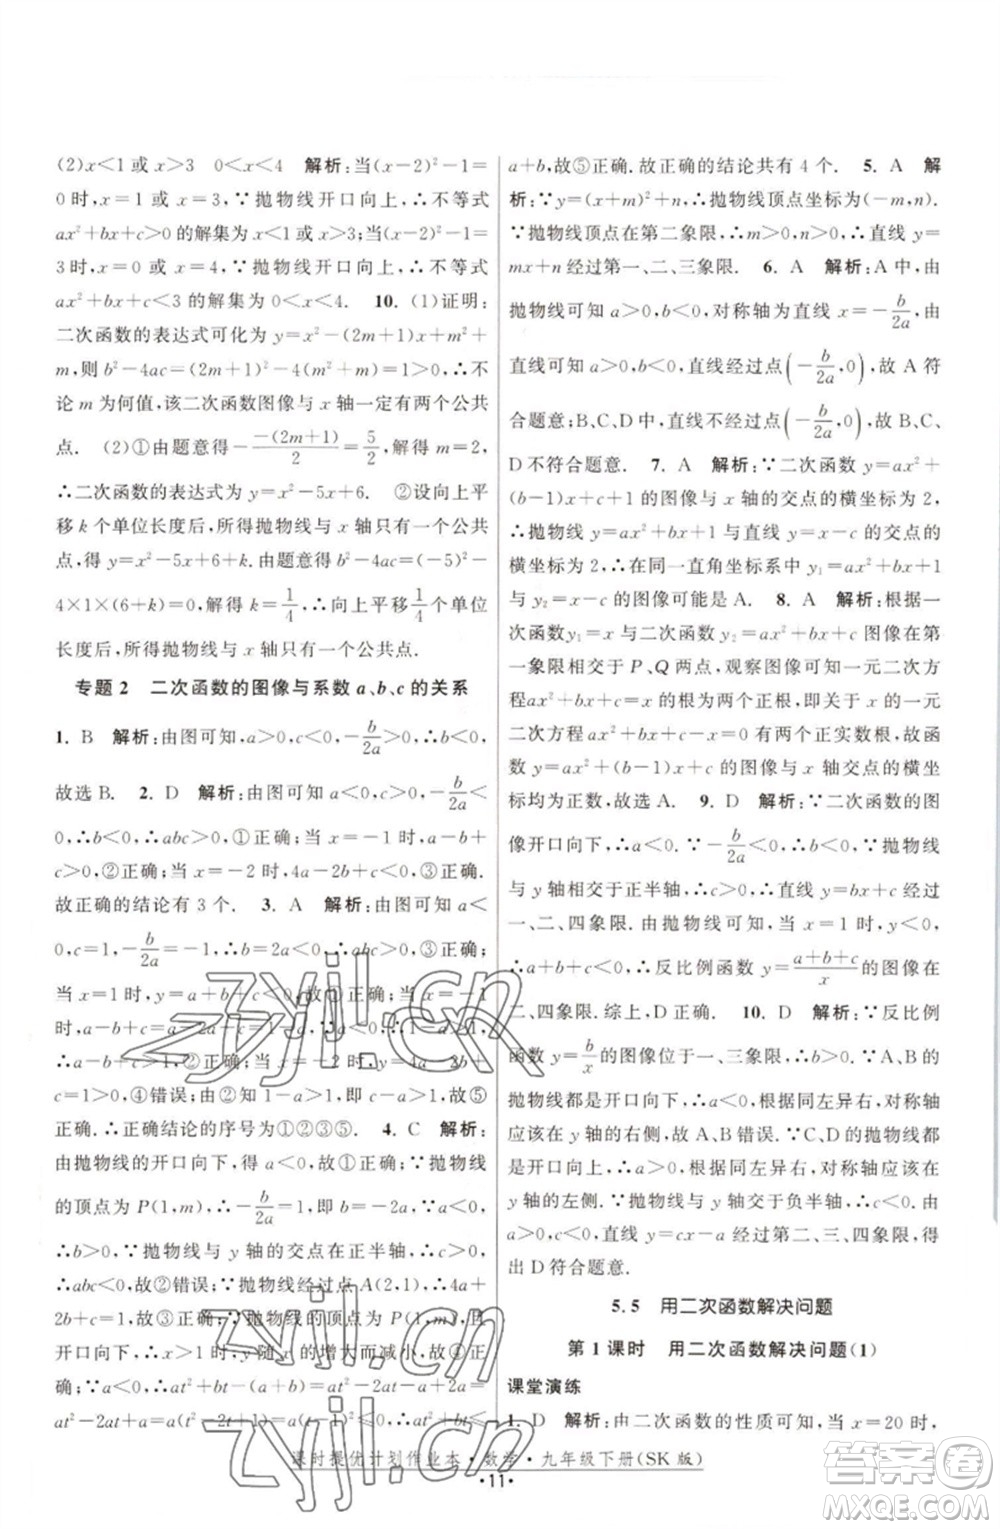 (2)x<1或x>3　0<x<4　解析:当(x-2)²-1=
0时,x=1或x=3,∵抛物线开口向上,∴不等式
ax²+bx+c>0的解集为x<1或x>3;当(x-2)²-1=
3时,x=4或x=0,∵抛物线开口向上,∴不等式
ax²+bx+c<3的解集为0<x<4.　10. (1)证明:
二次函数的表达式可化为y=x²-(2m+1)x+m²+
m,则b²-4ac=(2m+1)²-4(m²+m)=1>0,∴不
论m为何值,该二次函数图像与x轴一定有两个公共
点.　(2)①由题意得-\frac{-(2m+1)}{2}=\frac{5}{2},解得m=2,
∴二次函数的表达式为y=x²-5x+6.　②设向上平
移k个单位长度后,所得抛物线与x轴只有一个公共
点,得y=x²-5x+6+k.由题意得b²-4ac=(-5)²-
4×1×(6+k)=0,解得k=\frac{1}{4},∴向上平移\frac{1}{4}个单位
长度后,所得抛物线与x轴只有一个公共点.
专题2　二次函数的图像与系数a、b、c的关系
1. B　解析:由图可知,a>0,c<0,-\frac{b}{2a}>0,∴b<0,
故选B.　2. D　解析:由图可知a>0,c>0,-\frac{b}{2a}
<0,∴b<0,∴abc>0,①正确;当x=-1时,a-b+
c>0,②正确;当x=-2时,4a-2b+c>0,③正确.
故正确的结论有3个.　3. A　解析:由图可知a<
0,c=1,-\frac{b}{2a}=-1,∴b=2a<0,∴abc>0,③正确;
当x=1时,y=a+b+c<0,①正确;当x=-1
时,a-b+c>1,②正确;
∴a-b+c>
c=1,>0,④错误;由②知a-b+c>1,即a-b+c-c>
1-c,∴⑤正确.∴正确结论的序号为①②③⑤.　4. C　解析:
由抛物线的开口向下,得a<0,故①正确;∵抛物线
的顶点为P(1,m),∴-\frac{b}{2a}=1,即b=-2a,∴b>0.
∵抛物线与y轴的交点在正半轴,∴c>0,
∴abc<0,故②错误;∵抛物线经过点A(2,1),∴4a+
2b+c=1,∵抛物线的顶点为P(1,m),且
开口向下,∴当x>1时,y随x的增大而减小,故④正确;
∵a<0,∴at²-
at²-2at+a=a(t²-2t+1)=a(t-1)²≤0,∴at²+bt≤
a+b,故⑤正确.故正确的结论共有4个.　5. A　解
析:∵y=(x+m)²+n,∴抛物线顶点坐标为(-m,n).
∵抛物线顶点在第二象限,∴m>0,n>0,∴直线y=
mx+n经过第一、二、三象限.　6. A　解析:A中,由
抛物线可知a>0,b<0,对称轴为直线x=-\frac{b}{2a},由
直线可知a>0,b<0,直线经过点(-\frac{b}{2a},0),故A符
合题意;B、C、D中,直线不经过点(-\frac{b}{2a},0),故B、C、
D不符合题意.　7. A　解析:∵二次函数y=ax²+
(b-1)x+c+1的图像与x轴的交点的横坐标为2,
∴抛物线y=ax²+bx+1与直线y=x-c的交点的
横坐标为2,∴在同一直角坐标系中y₁=ax²+bx+1
与y₂=x-c的图像可能是A.　8. A　解析:根据一
次函数y₁=x与二次函数y₂=ax²+bx+c图像在第
一象限相交于P、Q两点,观察图像可知一元二次方
程ax²+bx+c=x的两个根为两个正根,所以一元
二次方程ax²+(b-1)x+c=0有两个正实数根,故
函数y=ax²+(b-1)x+c的图像与x轴交点的横坐
标均为正数,故选A.　9. D　解析:∵二次函数的图
像开口向下,∴a<0,∵-\frac{b}{2a}<0,∴b<0.∵抛物线
与y轴相交于正半轴,∴c>0,∴直线y=bx+c经过
一、二、四象限.由抛物线可知,当x=1时,y<0,
∴a+b+c<0,∴反比例函数y=\frac{a+b+c}{x}的图像在
二、四象限.综上,D正确.　10. D　解析:∵反比例
函数y=\frac{b}{x}的图像位于一、三象限,∴b>0.∵A、B的
抛物线都是开口向下,∴a<0,根据同左异右,对称轴
应该在y轴的右侧,故A、B错误.∵C、D的抛物线都
是开口向上,∴a>0,根据同左异右,对称轴应该在
y轴的左侧.∵抛物线与y轴交于负半轴,∴c<0.由
a>0,c<0,∴直线y=cx-a经过第二、三、四象限,得
出D符合题意.
5.5　用二次函数解决问题
第1课时　用二次函数解决问题(1)
课堂演练
1. D　解析:由二次函数的性质可知,当x=20时,
课时提优计划作业本·数学·九年级下册(SK版)
·11·
zyjl.cn
zyjl.cn
答案圈
MXQE.COM